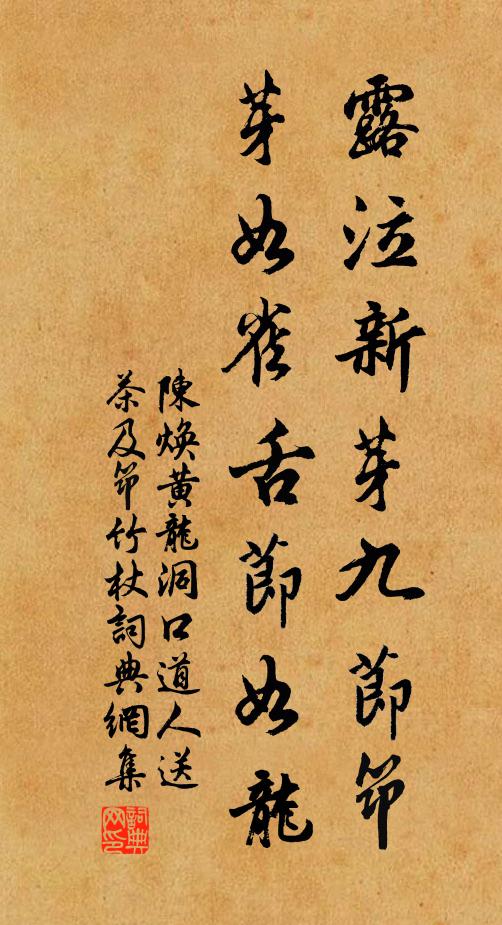 露泣新芽九節筇
芽如雀舌節如龍
陳煥黃龍洞口道人送
茶及筇竹杖詞典網集
詞典
网印